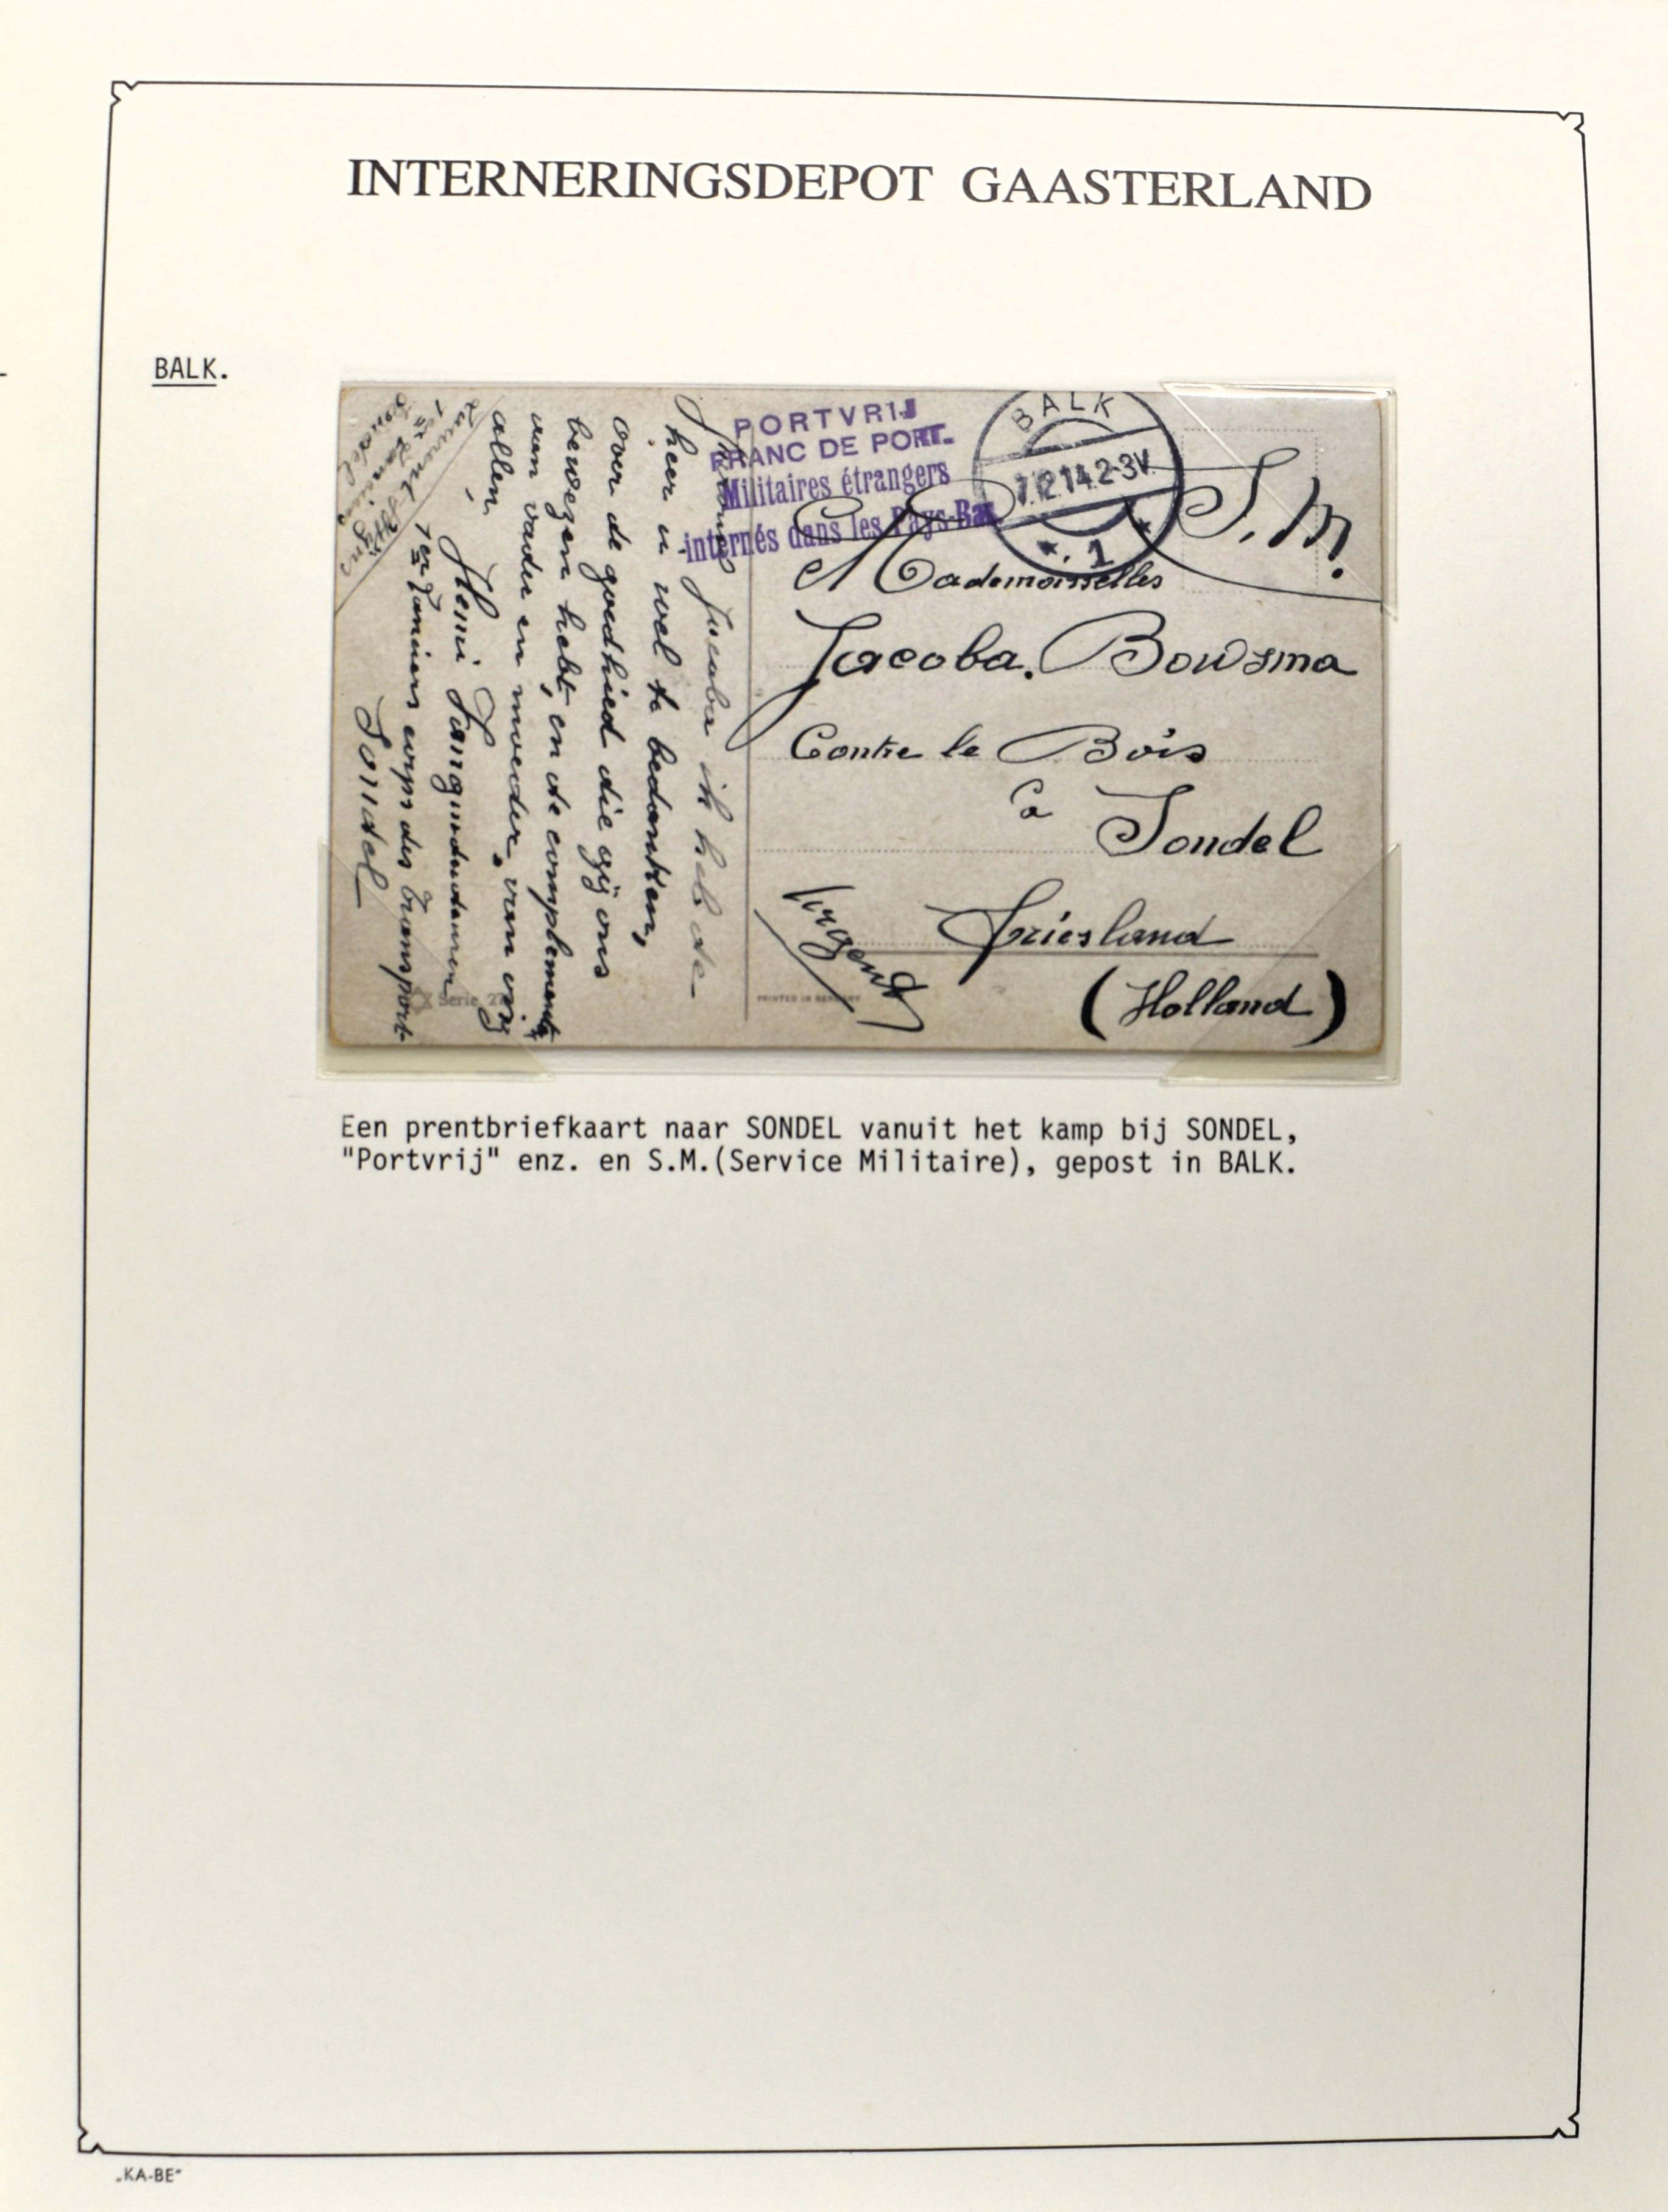 INTERNERINGSDEPOT GAASTERLAND
BALK.
PORTVRIJ
FRANC DE PORT.
Militaires étrangers
internés dans les Pays-Bas
BALK
7.12.14.2-3V.
1
S.M.
Mademoisselles
Jacoba. Bowsma
Contre le Bois
à
Sondel
Friesland
(Holland)
Urgent
PRINTED IN GERMANY
Serie
Jacoba ik heb de
heer u wel te bedanken,
over de goedhied die gij ons
bewezen hebt, en de complimenten
van vader en moeder, van mij
allen,
Henri
1er Lanciers corps des transport
Sondel
Sondel
Een prentbriefkaart naar SONDEL vanuit het kamp bij SONDEL,
"Portvrij" enz. en S.M.(Service Militaire), gepost in BALK.
„KA-BE"